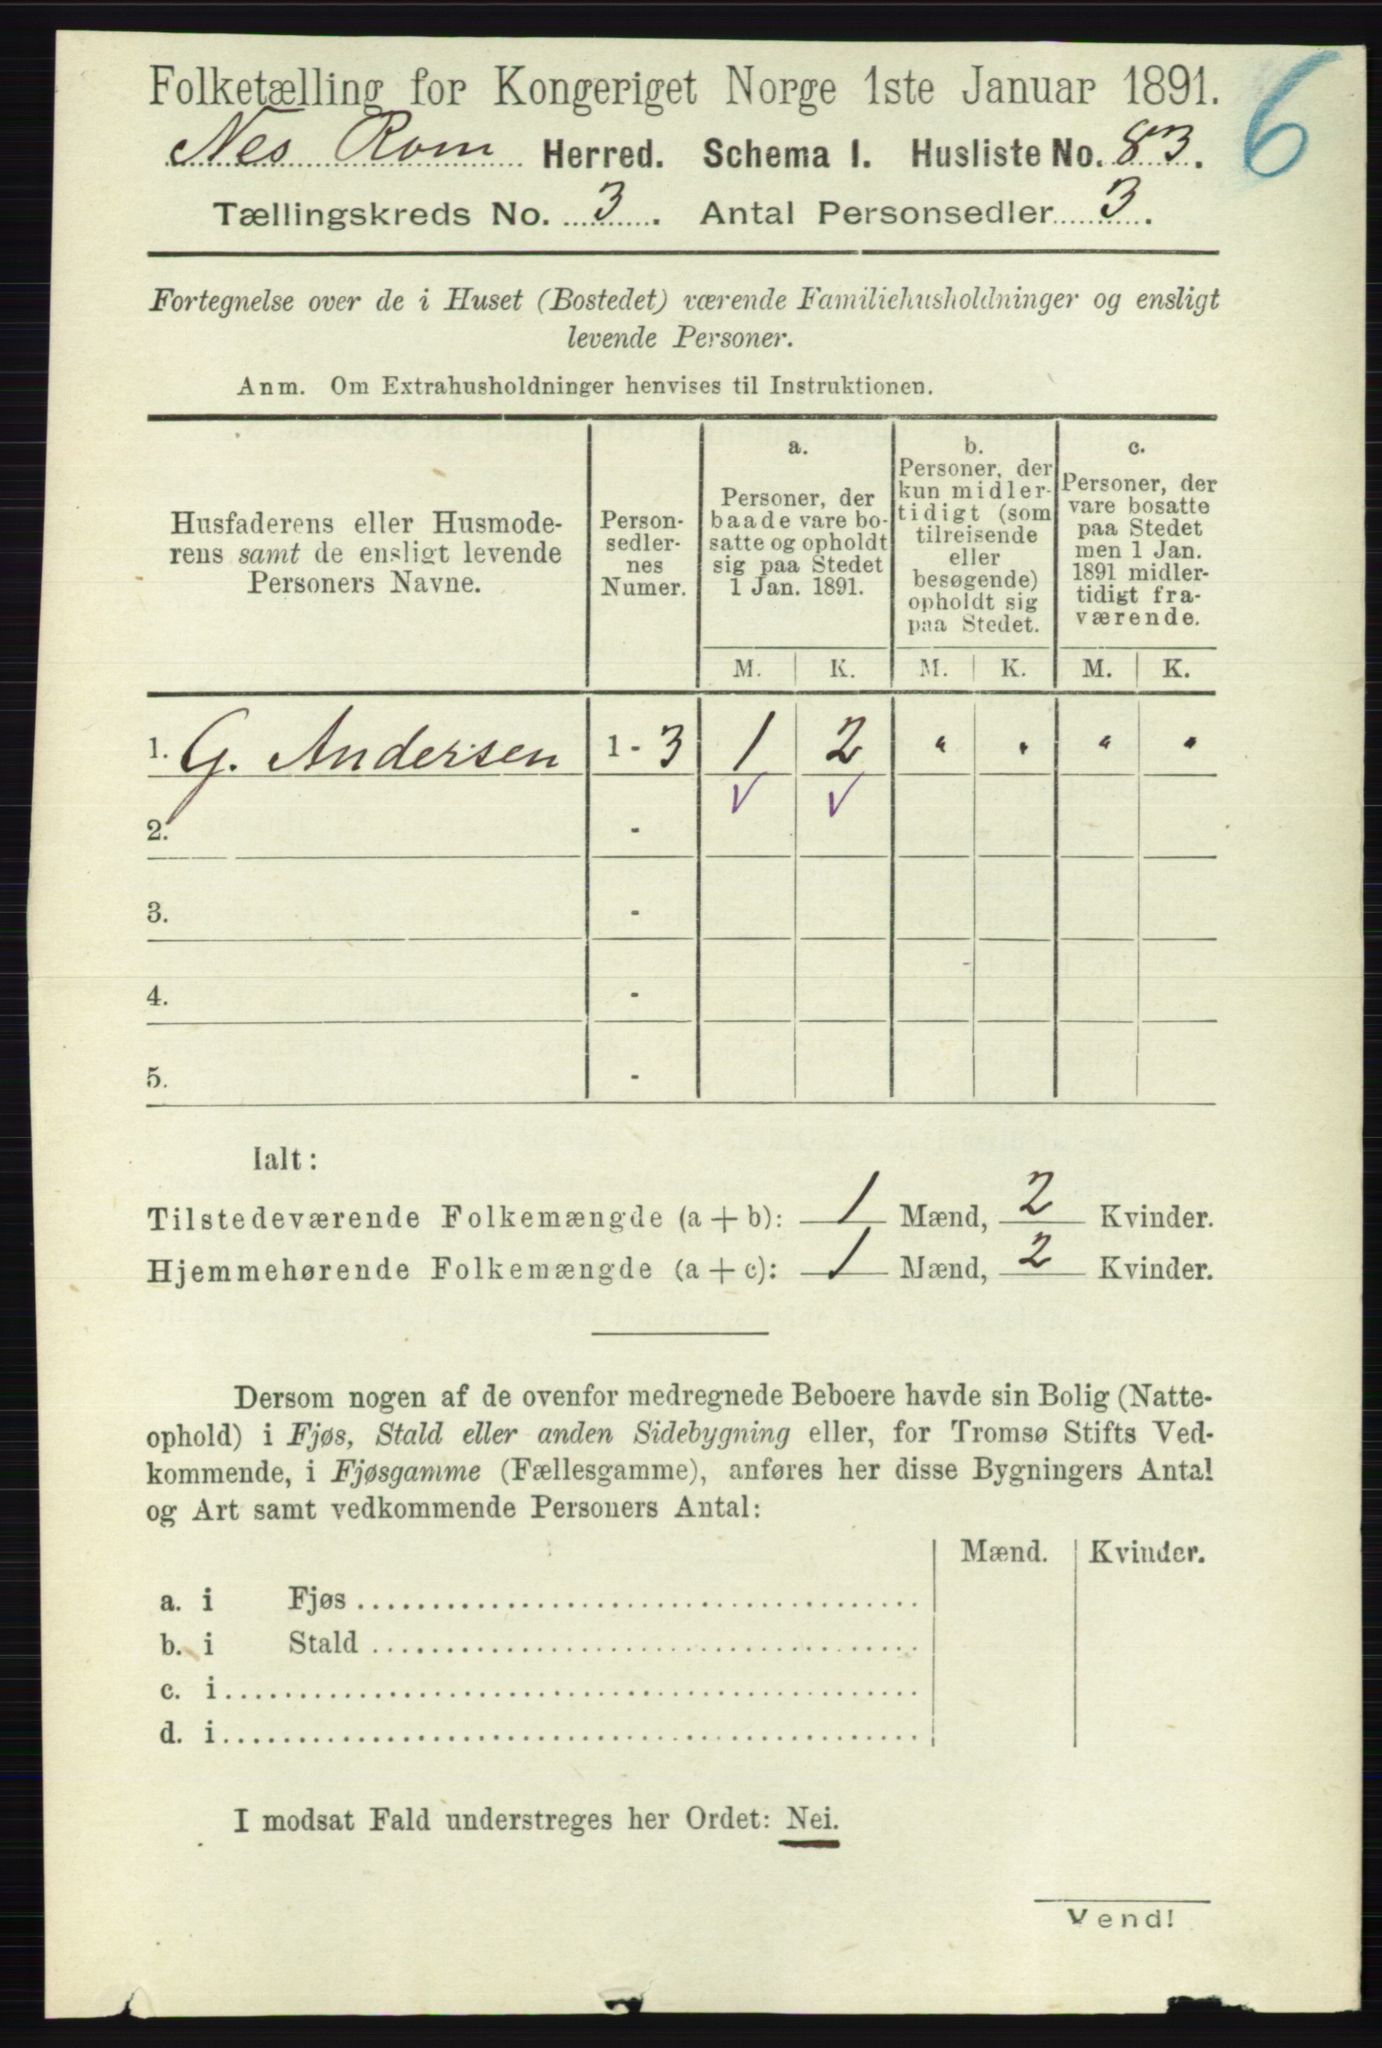 Folketælling for Kongeriget Norge 1ste Januar 1891.
6
Nes Rom Herred. Schema I. Husliste No. 83.
Tællingskreds No. 3. Antal Personsedler 3.
Fortegnelse over de i Huset (Bostedet) værende Familiehusholdninger og ensligt
levende Personer.
Anm. Om Extrahusholdninger henvises til Instruktionen.
Husfaderens eller Husmode-
rens samt de ensligt levende
Personers Navne.
Person-
sedler-
nes
Numer.
a.
Personer, der
baade vare bo-
satte og opholdt
sig paa Stedet
1 Jan. 1891.
b.
Personer, der
kun midler-
tidigt (som
tilreisende
eller
besøgende)
opholdt sig
paa Stedet.
c.
Personer, der
vare bosatte
paa Stedet
men 1 Jan.
1891 midler-
tidigt fra-
værende.
M. K. M. K. M. K.
1. G. Andersen 1 - 3 1 2 " " " "
✓ ✓
2. -
3. -
4. -
5. -
Ialt:
Tilstedeværende Folkemængde (a + b): 1 Mænd, 2 Kvinder.
Hjemmehørende Folkemængde (a + c): 1 Mænd, 2 Kvinder.
Dersom nogen af de ovenfor medregnede Beboere havde sin Bolig (Natte-
ophold) i Fjøs, Stald eller anden Sidebygning eller, for Tromsø Stifts Ved-
kommende, i Fjøsgamme (Fællesgamme), anføres her disse Bygningers Antal
og Art samt vedkommende Personers Antal:
Mænd. Kvinder.
a. i Fjøs
b. i Stald
c. i
d. i
I modsat Fald understreges her Ordet: Nei.
Vend!